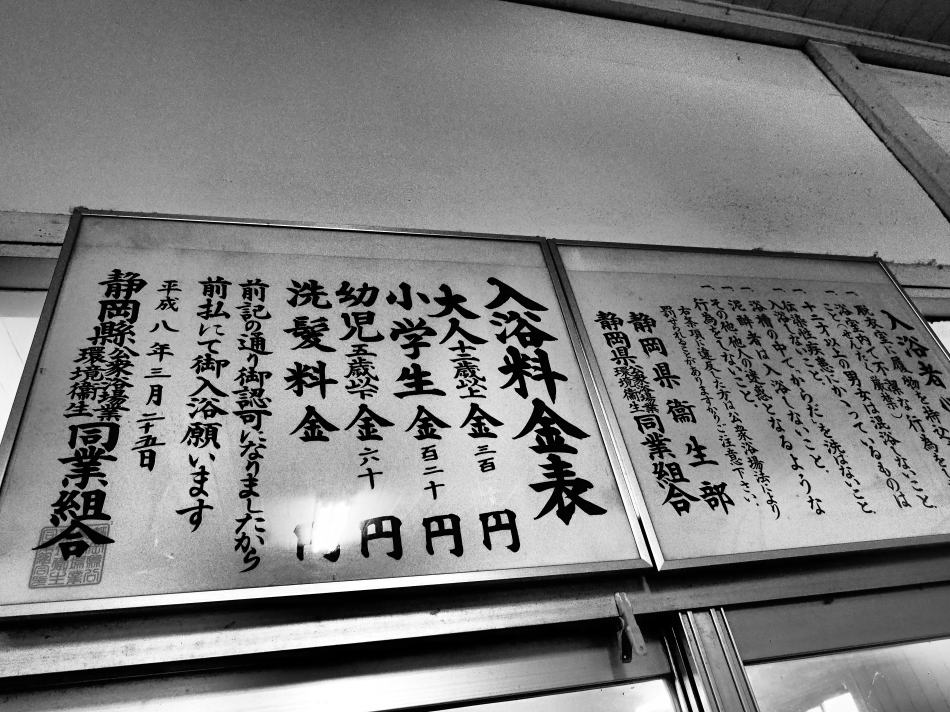 入浴者
脱衣室に履物を
浴室内で不潔な行為を
十二才以上の男女は混浴しないこと
伝染性の病
こと、からだを洗はないこと、
浴槽の中で
泥酔者は入浴しないこと、
その他他人の迷惑となるような
行為をしないこと
右条項に違反した方は公衆浴場法により
罰せられることがありますからご注意下さい、
静岡県衞生部
静岡県公衆浴場業環境衞生同業組合
入浴料金表
大人十二歳以上金三百円
小学生金百二十円
幼児五歳以下金六十円
洗髪料金円
前記の通り御認可になりましたから
前払にて御入浴願います
平成八年三月二十五日
静岡縣公衆浴場業環境衞生同業組合